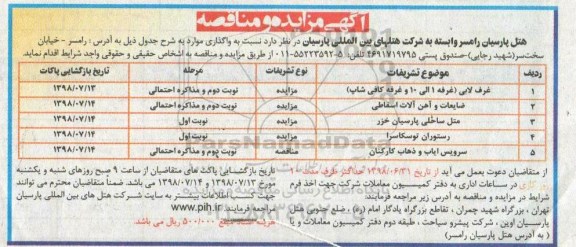 آگهی مزایده و مناقصه
هتل پارسیان رامسر وابسته به شرکت هتلهای بین المللی پارسیان در نظر دارد نسبت به واگذاری موارد به شرح جدول ذیل به آدرس : رامسر - خیابان
سخت‌سر(شهید رجایی)-صندوق پستی ۴۶۹۱۷۱۹۷۹۵ تلفن: ۵-۵۵۲۲۳۵۹۲-۰۱۱ از طریق مزایده و مناقصه به اشخاص حقیقی و حقوقی واجد شرایط اقدام نماید.
ردیف موضوع تشریفات نوع تشریفات مرحله تاریخ بازگشایی پاکات
۱ غرف لابی (غرفه ۱ الی ۱۰ و غرفه کافی شاپ) مزایده نوبت دوم و مذاکره احتمالی ۱۳۹۸/۰۷/۱۳
۲ ضایعات و آهن آلات اسقاطی مزایده نوبت دوم و مذاکره احتمالی ۱۳۹۸/۰۷/۱۴
۳ متل ساحلی پارسیان خزر مزایده نوبت اول ۱۳۹۸/۰۷/۱۴
۴ رستوران توسکاسرا مزایده نوبت اول ۱۳۹۸/۰۷/۱۴
۵ سرویس ایاب و ذهاب کارکنان مناقصه نوبت دوم و مذاکره احتمالی ۱۳۹۸/۰۷/۱۴
از متقاضیان دعوت بعمل می آید از تاریخ ۱۳۹۸/۰۶/۳۱ حداکثر ظرف مدت ۱۰
روز کاری در ساعات اداری به دفتر کمیسیون معاملات شرکت جهت اخذ فرم
شرایط در مزایده و مناقصه به آدرس زیر مراجعه فرمایند:
تهران ، بزرگراه شهید چمران ، تقاطع بزرگراه یادگار امام (ره) ، ضلع جنوبی هتل
پارسیان اوین ، شرکت پیشرو سیاحت ، طبقه دوم دفتر کمیسیون معاملات و یا
( به آدرس هتل پارسیان رامسر)
تاریخ بازگشایی پاکت های متقاضیان از ساعت ۹ صبح روزهای شنبه و یکشنبه
مورخ ۱۳۹۸/۰۷/۱۳ و ۱۳۹۸/۰۷/۱۴ می باشد. ضمناً متقاضیان محترم می توانند
جهت کسب اطلاعات بیشتر به سایت شرکت هتل های بین المللی پارسیان
www.pih.ir مراجعه فرمایند.
مبلغ ۵۰۰/۰۰۰ ریال می باشد.